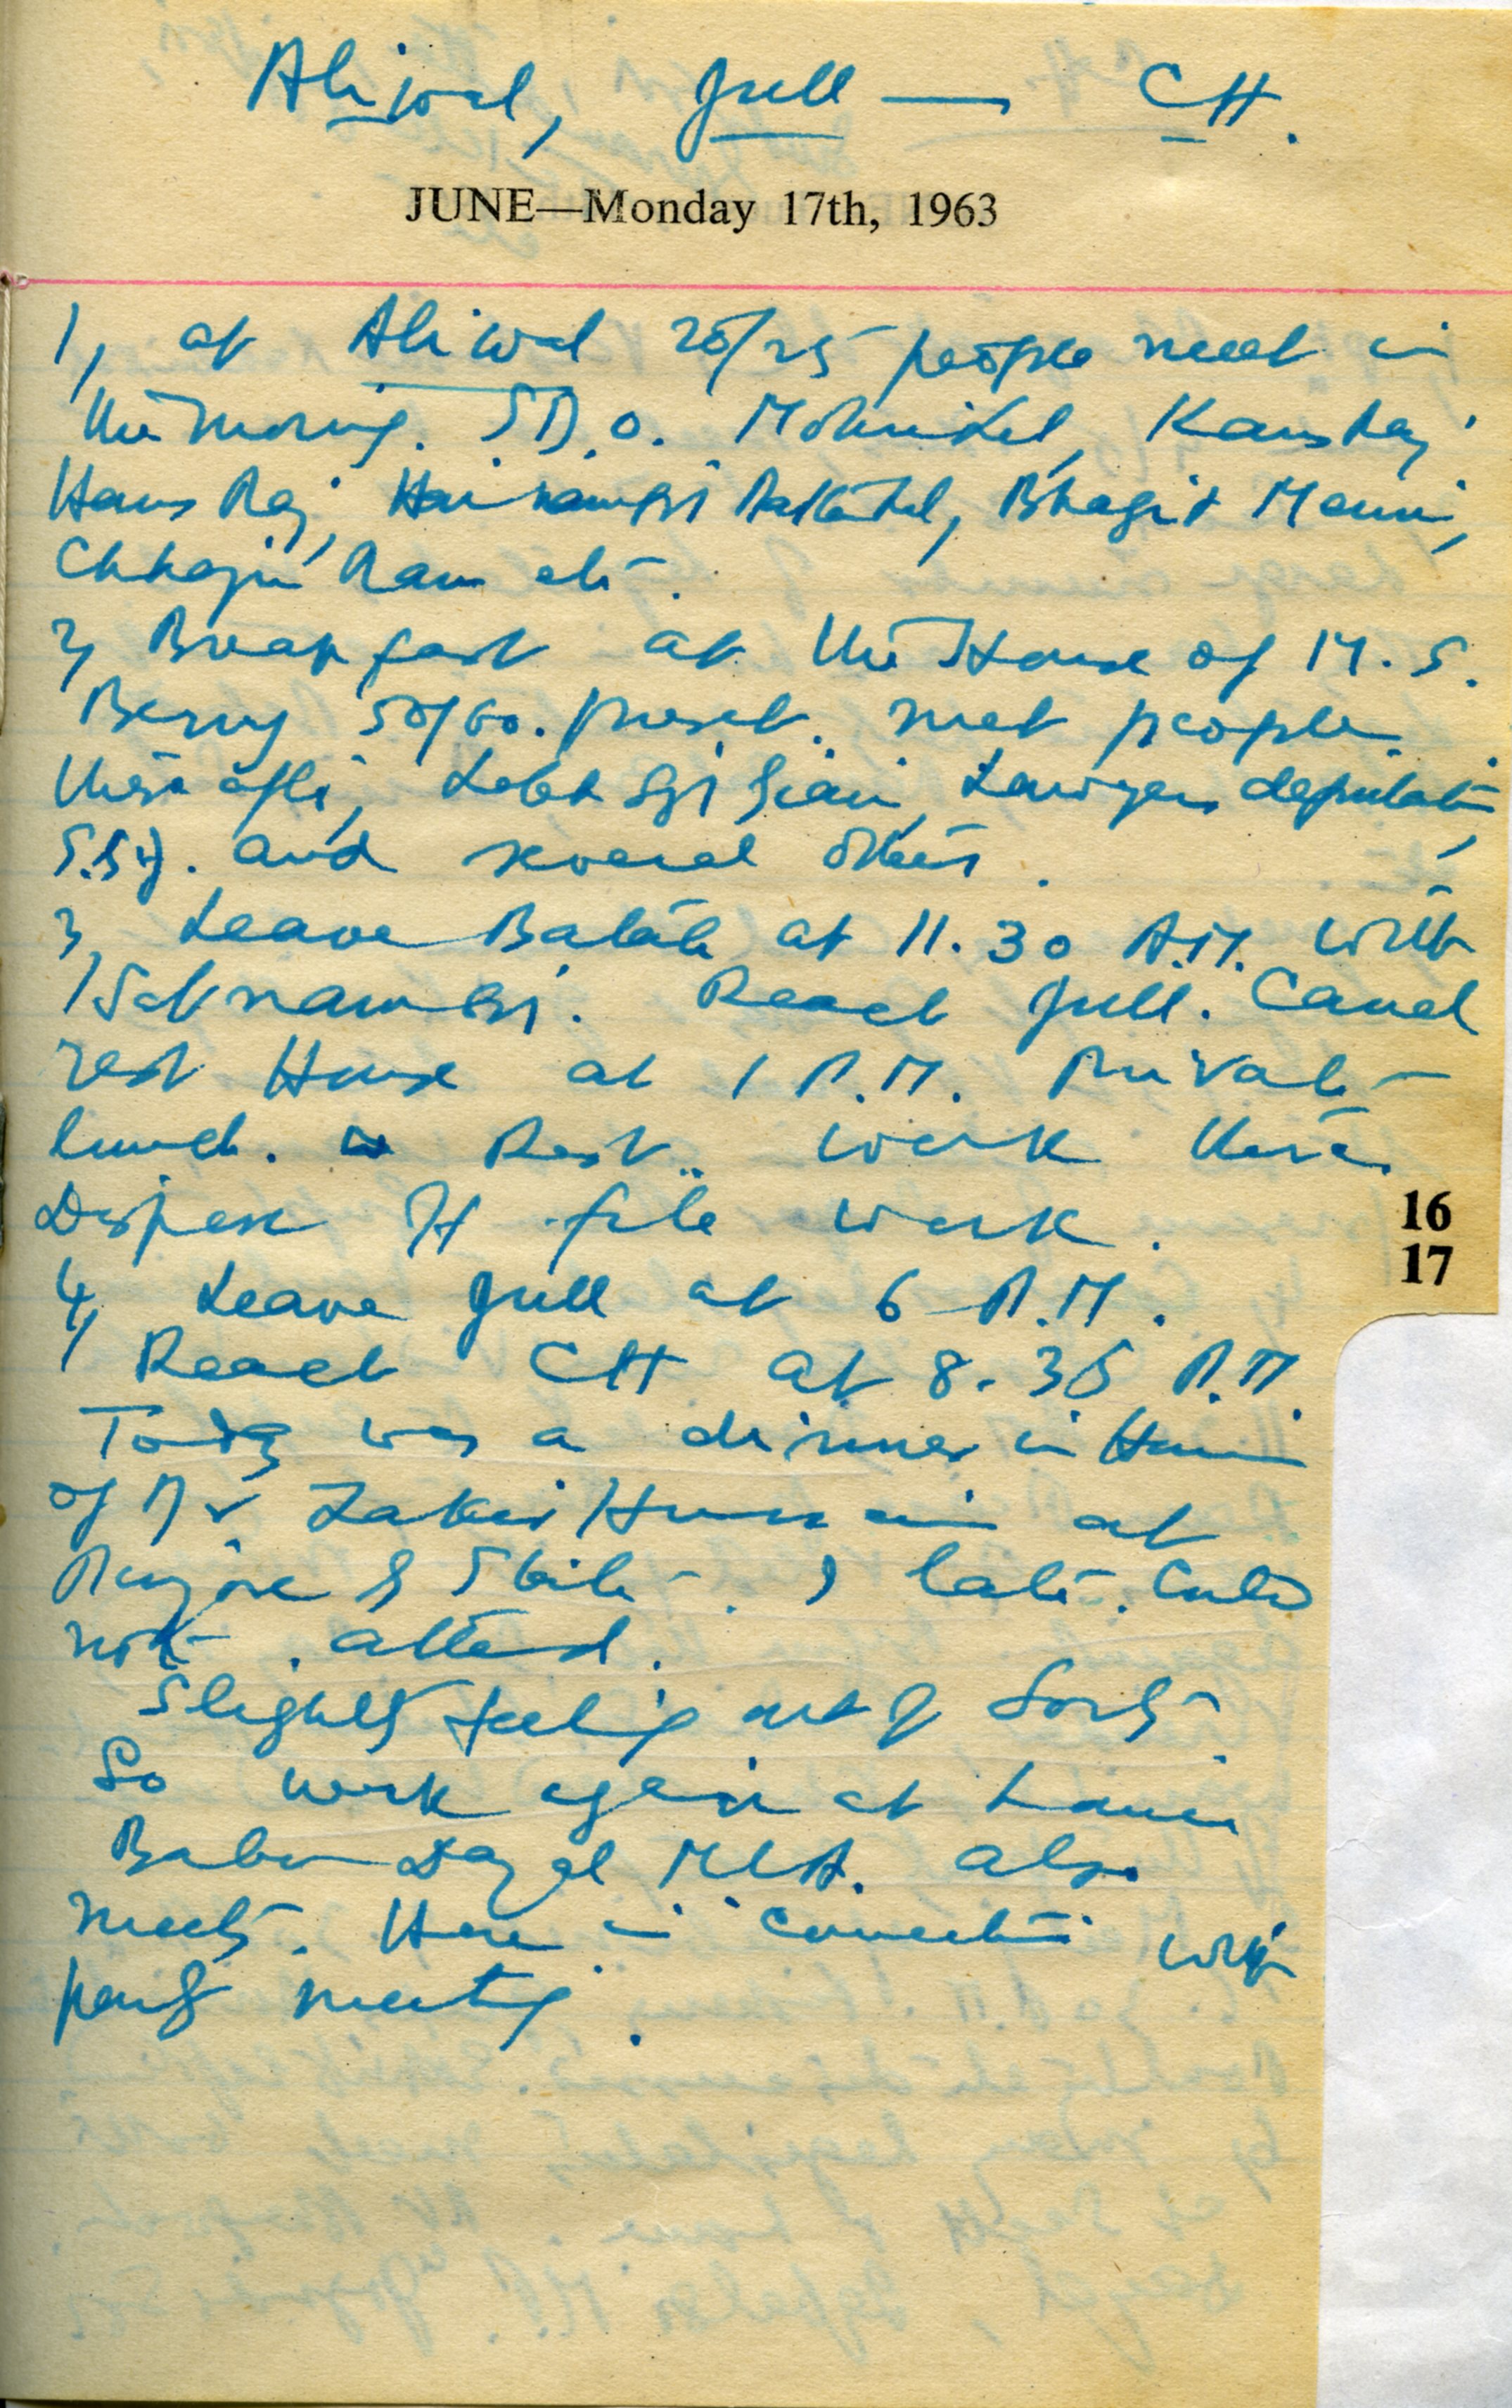 Aliwal, Jull — CH.
JUNE—Monday 17th, 1963
1, at Aliwal 20/25 people meet in
the morning. S.D.O. Mohinder, Kansraj
Hans Raj, Bhagat
Chhaju Ram etc.
2, Breakfast at the House of M.S.
Bering 50/60. present. met people
there after, Lawyers deputation,
and several others.
3, Leave Batala at 11.30 A.M. with
Satnam Reach Jull. Canal
rest House at 1 P.M. Private
lunch. Rest.. work there
Dispose of file work.
4, Leave Jull at 6 P.M.
Reach CH at 8.35 P.M.
Today was a dinner in Honour
of Dr Zakir Hussain at
Pinjore & State. I late. Could
not attend.
Slightly feeling out of Sorts.
So work again at home
Babu Dayal MLA. also
meets. Here in connection with
party meeting.
16
17